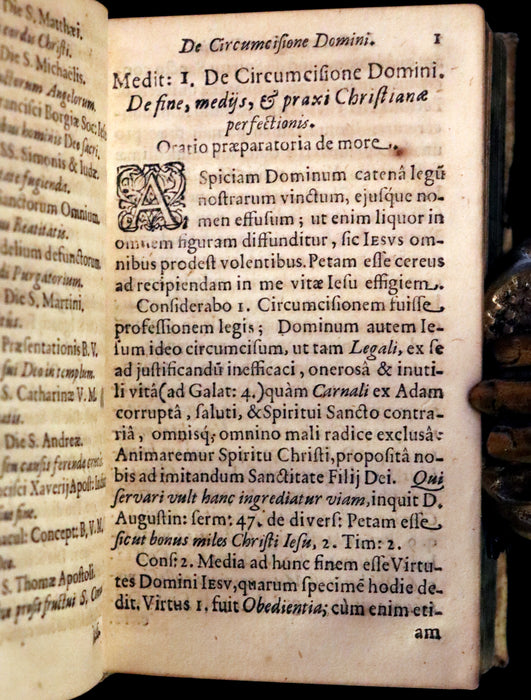 Die S. Matthæi.
cordus Christi.
Die S. Michaelis.
Angelorum.
Francisci Borgiæ Soc: Ies
Dominis Deo sacri.
SS. Simonis & Iudæ.
fugiendæ.
Sanctorum Omnium.
Beatitatis.
delium defunctorum.
Purgatorium.
Die S. Martini.
Præsentationis B. V.
sui Deo in templum.
S. Catharinæ V. M.
Die S. Andreæ.
causis ferendæ crucis.
ncisci Xaverij Apost: Indiæ
fine.
macul: Concept: B. V. M.
S. Thomæ Apostoli.
prosit fructui S.
De Circumcisione Domini. 1
Medit: 1. De Circumcisione Domini.
De fine, medijs, & praxi Christianæ
perfectionis.
Oratio præparatoria de more.
ASpiciam Dominum catenâ legũ
nostrarum vinctum, ejusq́ue no-
men effusum; ut enim liquor in
omnem figuram diffunditur, sic IESVS om-
nibus prodest volentibus. Petam esse cereus
ad recipiendam in me vitæ Iesu effigiem.
Considerabo 1. Circumcisionem fuisse
professionem legis; Dominum autem Ie-
sum ideo circumcisum, ut tam Legali, ex se
ad justificandũ inefficaci, onerosâ & inuti-
li vitâ (ad Galat: 4.) quàm Carnali ex Adam
corruptâ, saluti, & Spiritui Sancto contra-
riâ, omnisq; omnino mali radice exclusâ:
Animaremur Spiritu Christi, propositâ no-
bis ad imitandum Sanctitate Filij Dei. Qui
servari vult hanc ingrediatur viam, inquit D.
Augustin: serm: 47. de divers: Petam esse
sicut bonus miles Christi Iesu, 2. Tim: 2.
Cons: 2. Media ad hunc finem esse Virtu-
tes Domini IESV, quarum specimẽ hodie de-
dit. Virtus 1. fuit Obedientia; cùm enim eti-
am